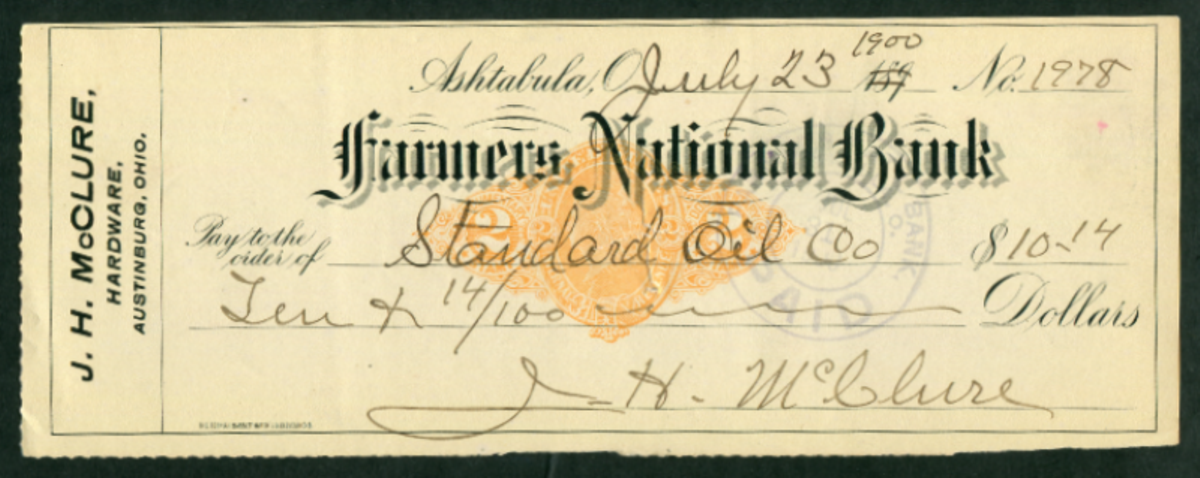 J. H. McCLURE,
HARDWARE,
AUSTINBURG, OHIO.
Ashtabula, O. July 23 1900 189 No. 1978
Farmers National Bank
Pay to the order of Standard Oil Co $10.14
Ten & 14/100 Dollars
J. H. McClure
2
BANK
PAID